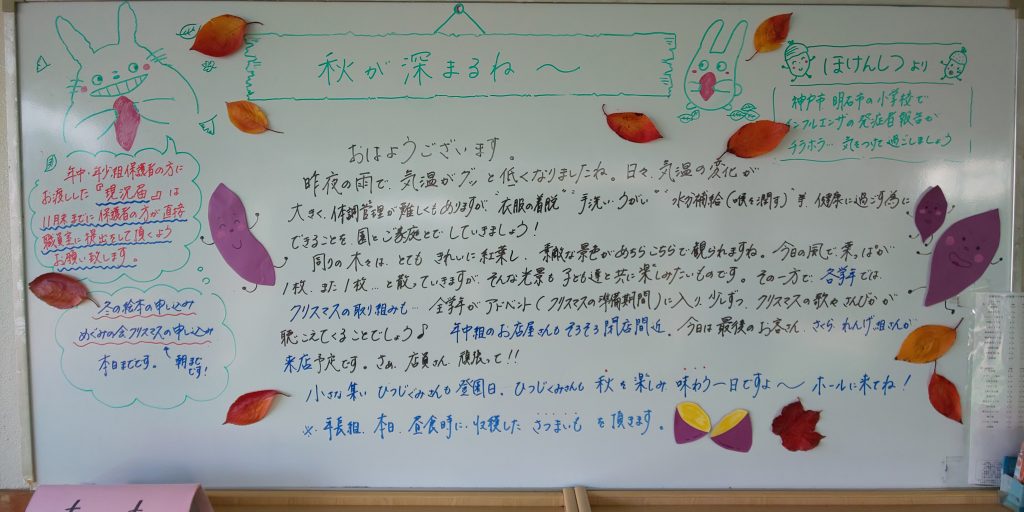 秋が深まるね〜
ほけんしつより
神戸市 明石市の小学校で
インフルエンザの発症者報告が
チラホラ… 気をつけて過ごしましょう
おはようございます。
昨夜の雨で、気温がグッと低くなりましたね。日々、気温の変化が
大きく、体調管理が難しくもありますが、"衣服の着脱" "手洗い・うがい" "水分補給(喉を潤す)" 等、健康に過ごす為に
できることを、園とご家庭とでしていきましょう！
周りの木々は、とても きれいに紅葉し、素敵な景色があちらこちらで観られますね。今日の風で、葉っぱが
1枚、また1枚…と散っていきますが、そんな光景も子ども達と共に楽しみたいものです。その一方で、各学年では、
クリスマスの取り組みも… 全学年がアドベント(クリスマスの準備期間)に入り、少しずつ、クリスマスの歌やさんびかが
聴こえてくることでしょう♪ 年中組のお店屋さんもそろそろ閉店間近。今日は最後のお客さん、さくら、れんげ組さんが
来店予定です。さぁ、店員さん 頑張って!!
小さな集い ひつじぐみさんも登園日。ひつじぐみさんも 秋を楽しみ 味わう一日ですよ〜 ホールに来てね！
※年長組、本日、昼食時に、収穫した さつまいも を頂きます。
年中・年少組保護者の方に
お渡しした『現況届』は
11月末までに保護者の方が直接
職員室に提出をして頂くよう
お願い致します。
冬の絵本の申し込み
めぐみの会クリスマスの申し込み
本日までです。
朝まで
です！